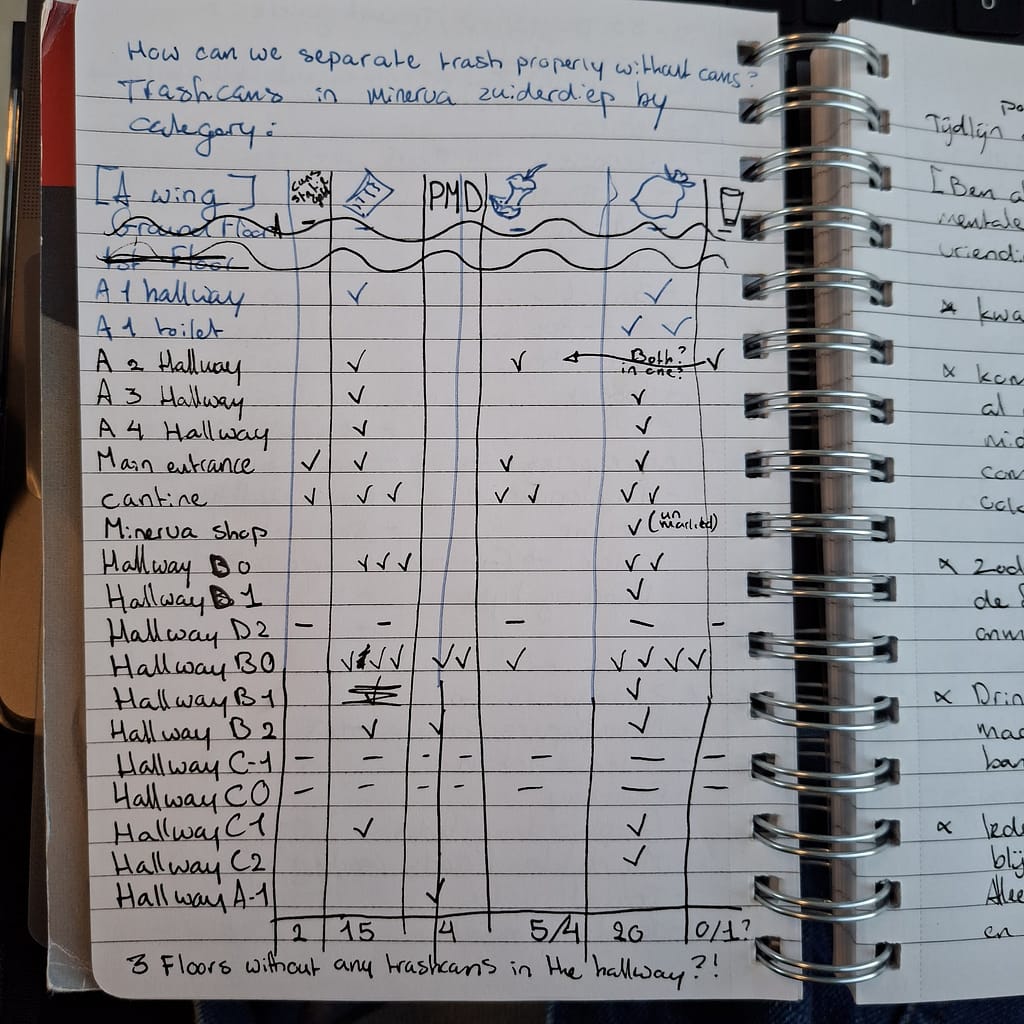 How can we separate trash properly without cans?
Trashcans in Minerva zuiderdiep by
category:
[A wing] PMD
Ground Floor
1st Floor
A 1 hallway ✓ ✓
A 1 toilet ✓ ✓
A 2 Hallway ✓ ✓ Both? in one? ✓
A 3 Hallway ✓ ✓
A 4 Hallway ✓ ✓
Main entrance ✓ ✓ ✓ ✓
cantine ✓ ✓ ✓ ✓ ✓ ✓ ✓
Minerva shop ✓ (un marked)
Hallway D 0 ✓ ✓ ✓ ✓ ✓
Hallway D 1 ✓
Hallway D2 - - - - -
Hallway B0 ✓ ✓ ✓ ✓ ✓ ✓ ✓ ✓ ✓ ✓
Hallway B 1 ✓
Hallway B 2 ✓ ✓ ✓
Hallway C-1 - - - - - - -
Hallway C0 - - - - - - -
Hallway C1 ✓ ✓
Hallway C2 ✓
Hallway A-1 ✓
2 15 4 5/4 20 0/1?
3 Floors without any trashcans in the hallway?!
Tijdlijn
[Ben a
mentale
vriendi
* kwa
al
de
* Drin
ma
ban
blij
Alle
en